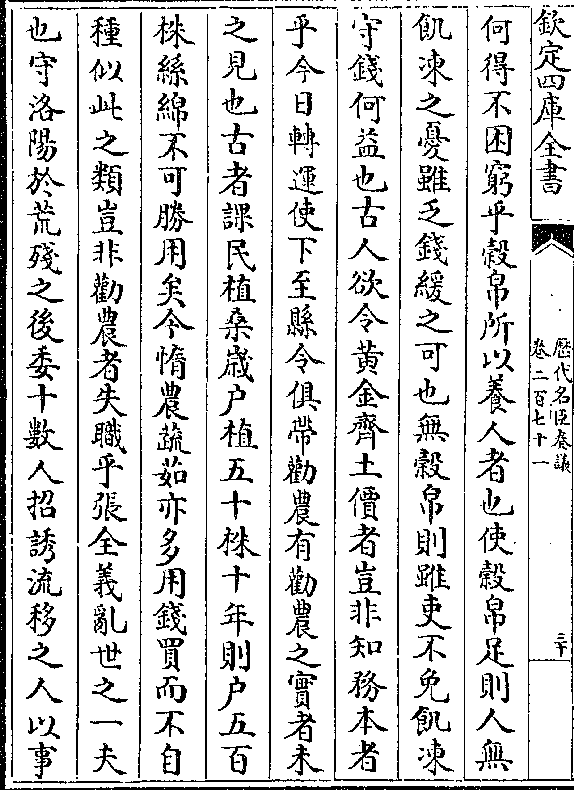 欽定四庫全書
歷代名臣奏議
卷二百七十一
三十
何得不困窮乎穀帛所以養人者也使穀帛足則人無
飢凍之憂雖乏錢緩之可也無穀帛則雖吏不免飢凍
守錢何益也古人欲令黄金齊土價者豈非知務本者
乎今日轉運使下至縣令俱帶勸農有勸農之實者未
之見也古者課民植桑歲户植五十株十年則户五百
株絲綿不可勝用矣今惰農蔬茹亦多用錢買而不自
種似此之類豈非勸農者失職乎張全義亂世之一夫
也守洛陽於荒殘之後委十數人招誘流移之人以事